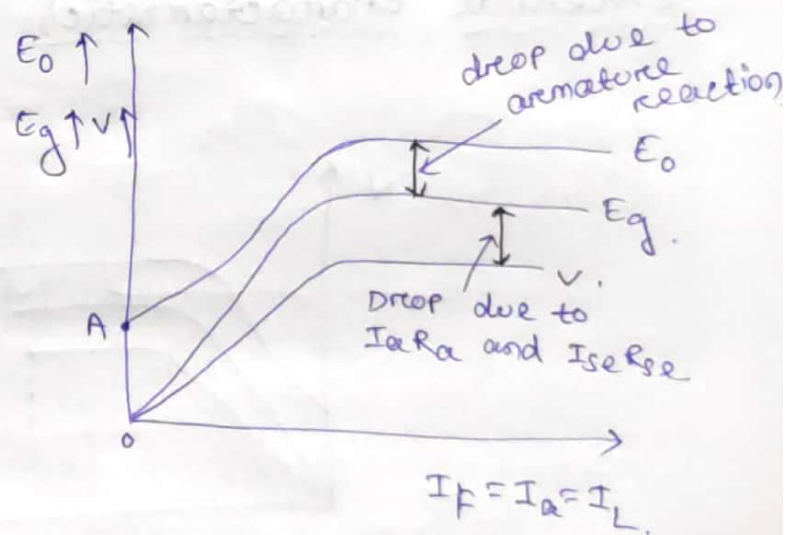 E₀ ↑
Eg ↑ V ↑
drop due to
armature
reaction
E₀
Eg.
V.
Drop due to
IaRa and IseRse
A
0
IF = Ia = IL.